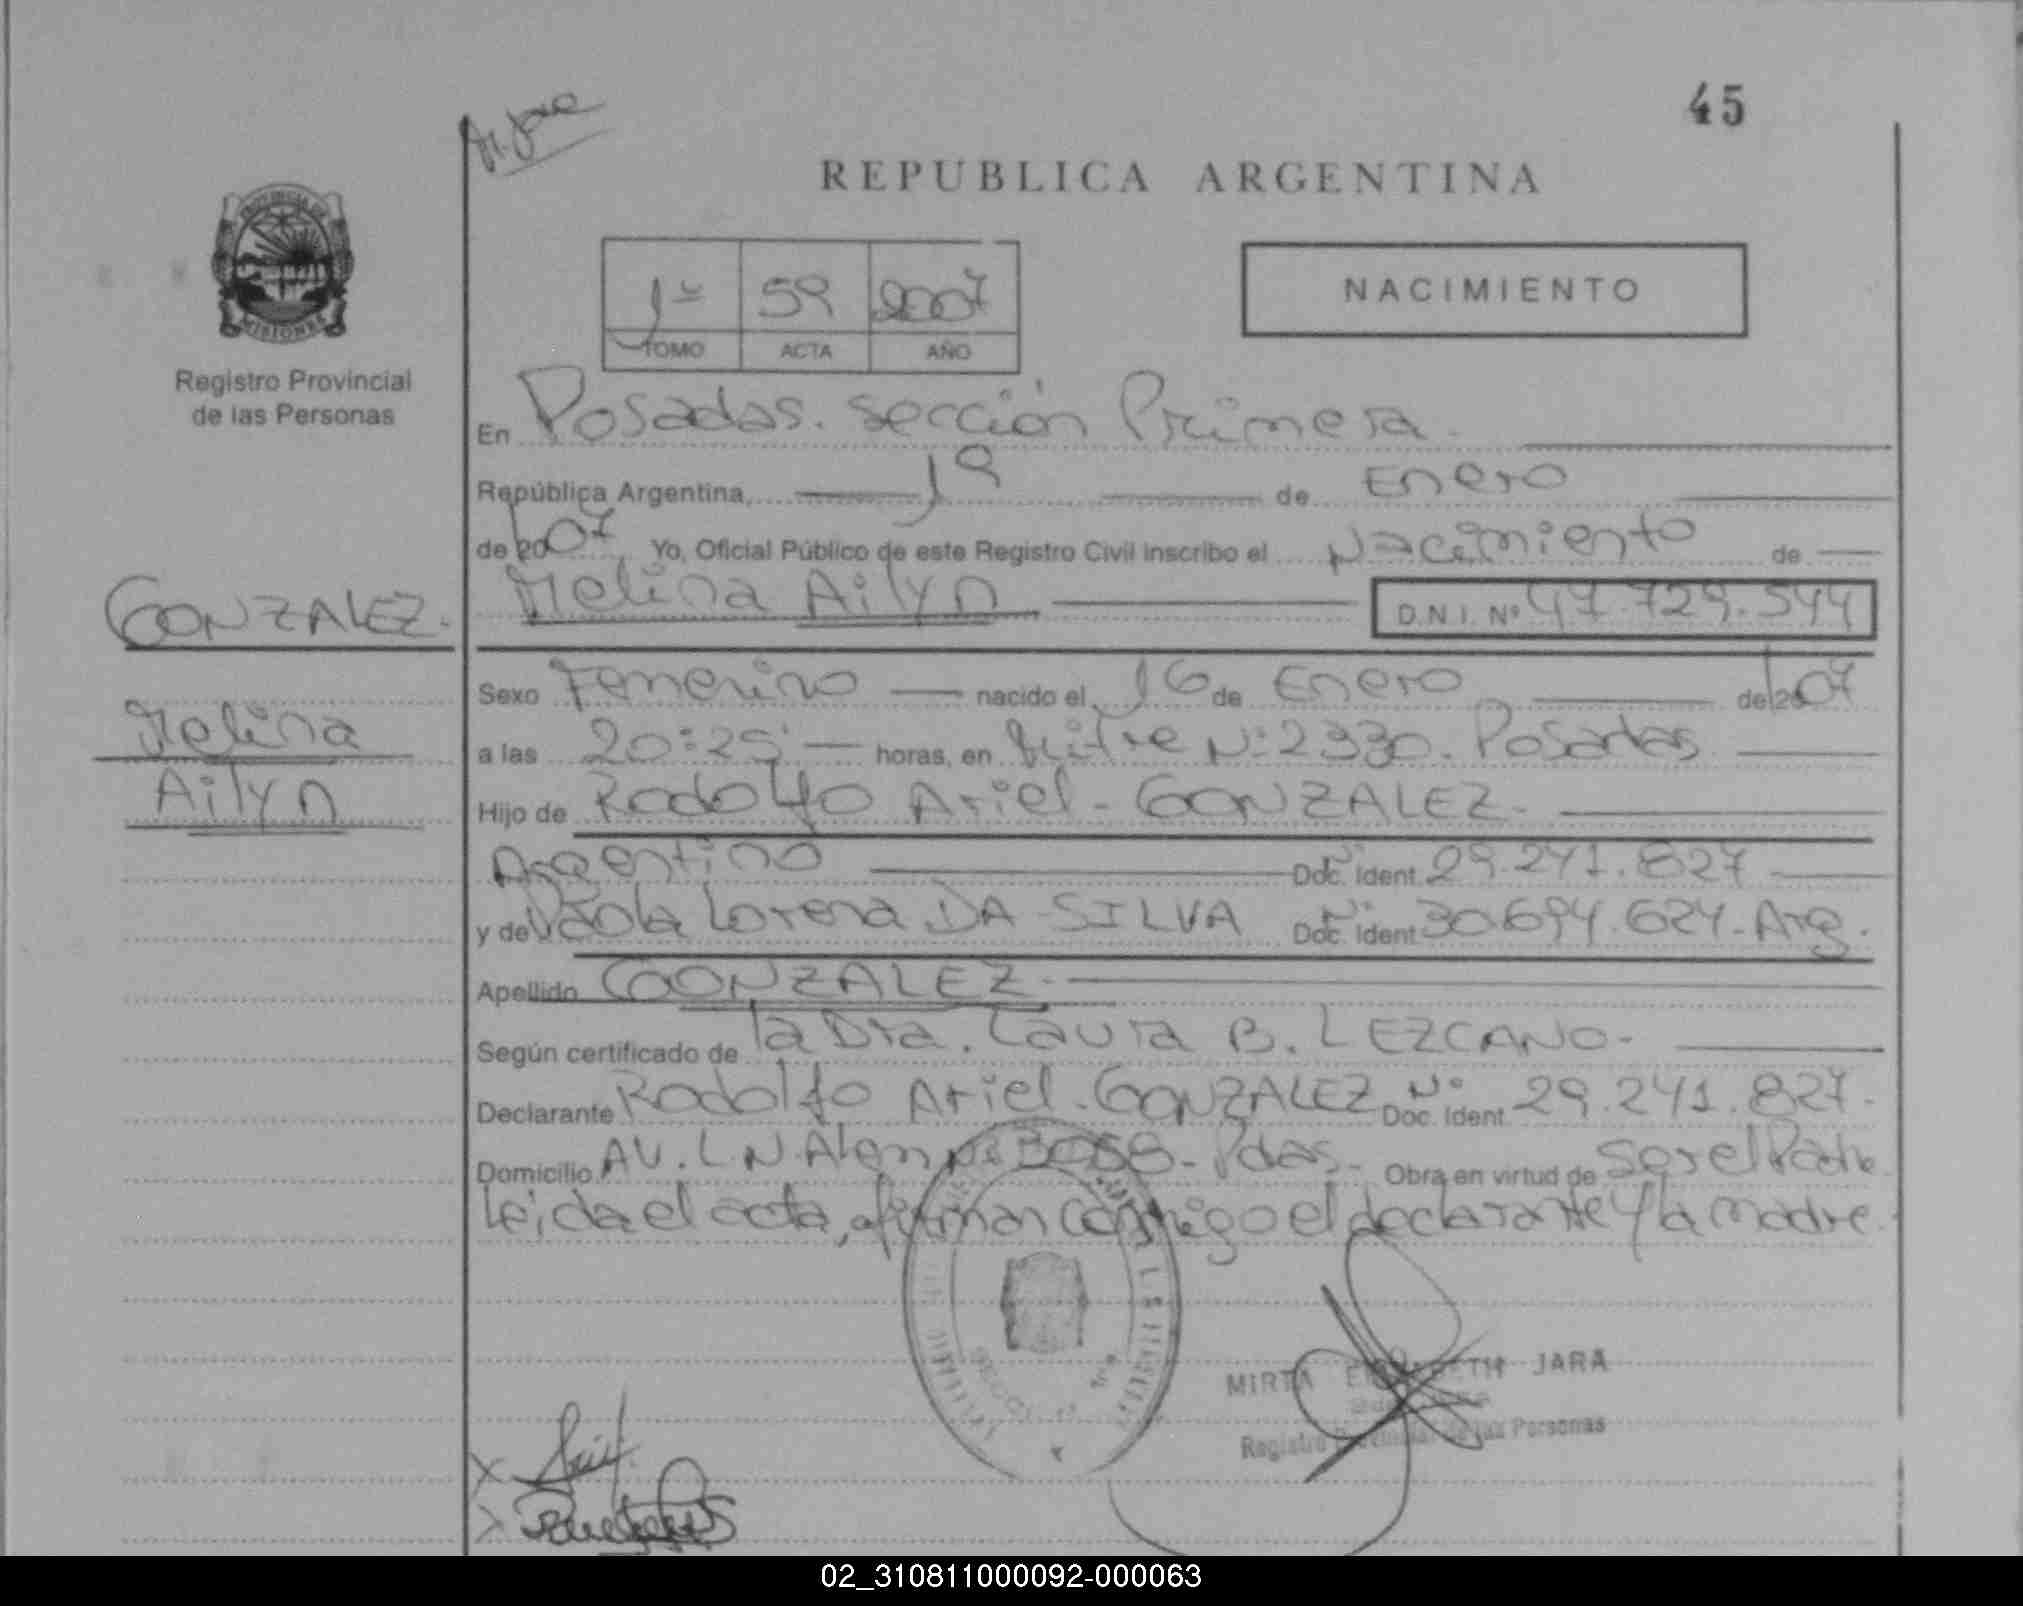 45
REPUBLICA ARGENTINA
PROVINCIA DE
MISIONES
Registro Provincial
de las Personas
1º 59 2007
TOMO ACTA AÑO
NACIMIENTO
En Posadas. sección Primera.
República Argentina, 19 de Enero
de 2007 Yo, Oficial Público de este Registro Civil inscribo el Nacimiento de
GONZALEZ.
Melina Ailyn D.N.I. Nº 47.729.544
Sexo Femenino nacido el 16 de Enero de 2007
Melina
a las 20:25 horas, en Mitre Nº 2330. Posadas
Ailyn
Hijo de Rodolfo Ariel - GONZALEZ.
Argentino Doc. Ident. Nº 29.241.827
y de Paola Lorena DA SILVA Doc. Ident. Nº 30.694.624. Arg.
Apellido GONZALEZ.
Según certificado de la Dra. Laura B. LEZCANO.
Declarante Rodolfo Ariel. GONZALEZ Doc. Ident. Nº 29.241.827.
Domicilio AV. L.N. Alem Nº 3058 - Pdas. Obra en virtud de ser el Padre
Leida el acta, firman conmigo el declarante y la madre.
MIRTA JARA
Registro Provincial de las Personas
02_310811000092-000063